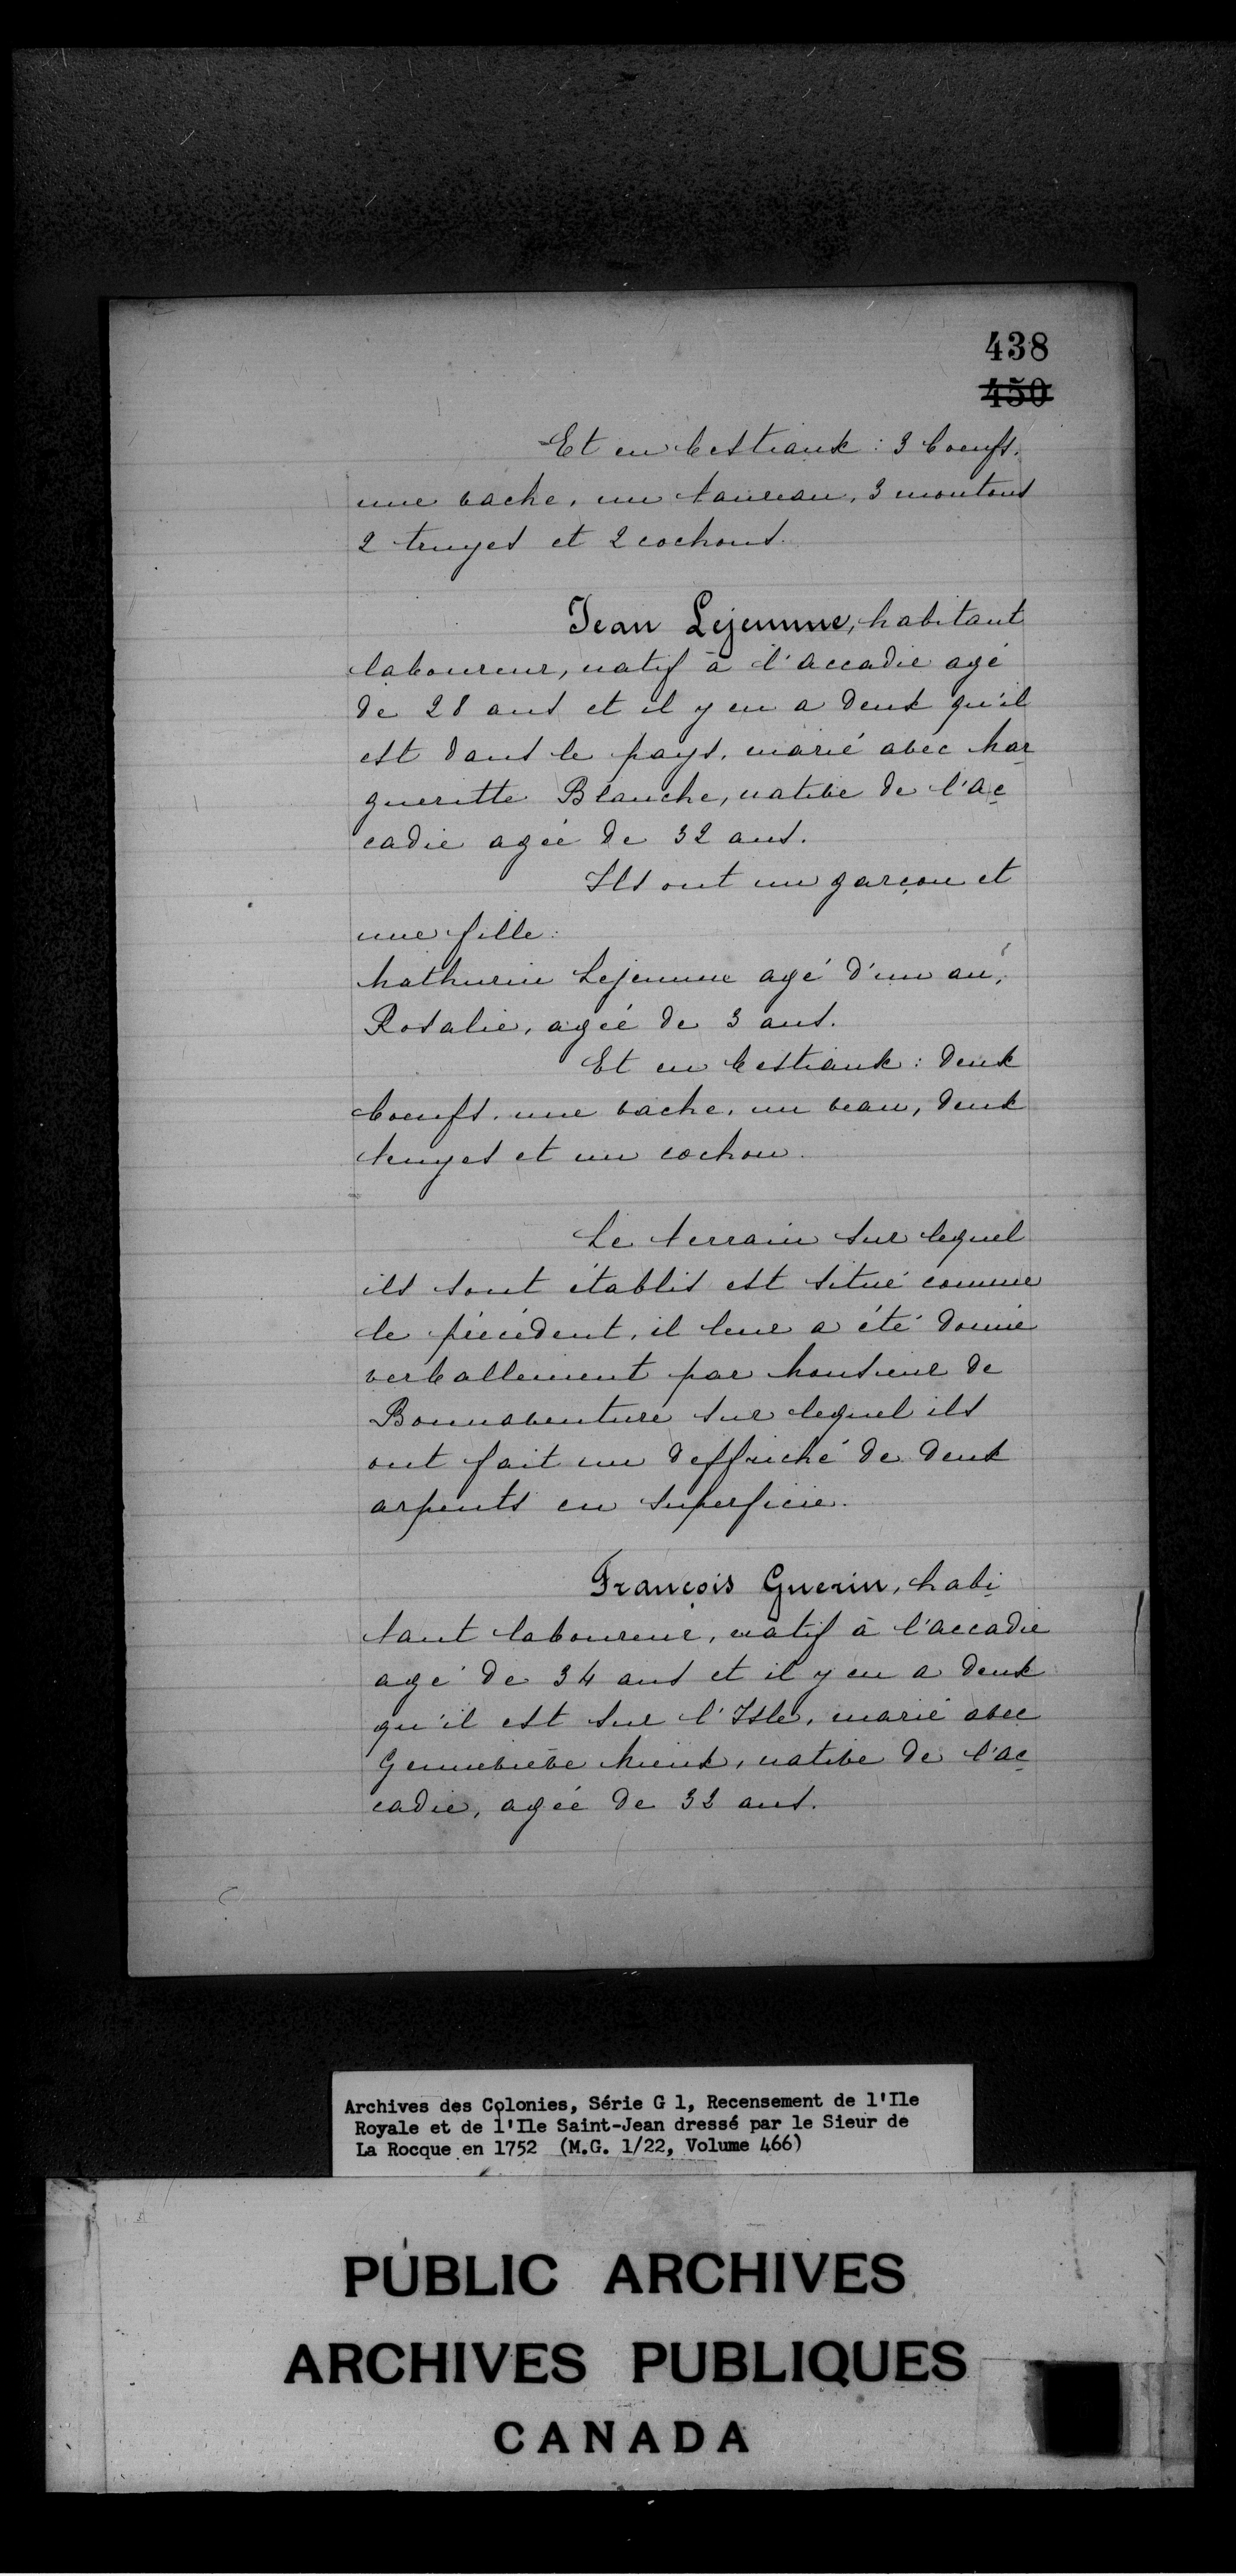 438
450
Et en bestiaux : 3 boeufs.
une vache, un taureau, 3 moutons
2 truyes et 2 cochons.
Jean Lejeunne, habitant
laboureur, natif à l'accadie agé
de 28 ans et il y en a deux qu'il
est dans le pays, marié avec Mar
gueritte Blanche, native de l'Ac
cadie agée de 32 ans.
Ils ont un garçon et
une fille :
Mathurin Lejeunne agé d'un an,
Rosalie, agée de 3 ans.
Et en bestiaux : deux
boeufs, une vache, un veau, deux
truyes et un cochon.
Le terrain sur lequel
ils sont établis est situé comme
le précédent, il leur a été donné
verballement par Monsieur de
Bonnaventure sur lequel ils
ont fait un deffriché de deux
arpents en superficie.
François Guerin, habi
tant laboureur, natif à l'accadie
agé de 34 ans et il y en a deux
qu'il est sur l'Isle, marié avec
Gennevieve Mieux, native de l'ac
cadie, agée de 32 ans.
Archives des Colonies, Série G 1, Recensement de l'Ile
Royale et de l'Ile Saint-Jean dressé par le Sieur de
La Rocque en 1752 (M.G. 1/22, Volume 466)
PUBLIC ARCHIVES
ARCHIVES PUBLIQUES
CANADA